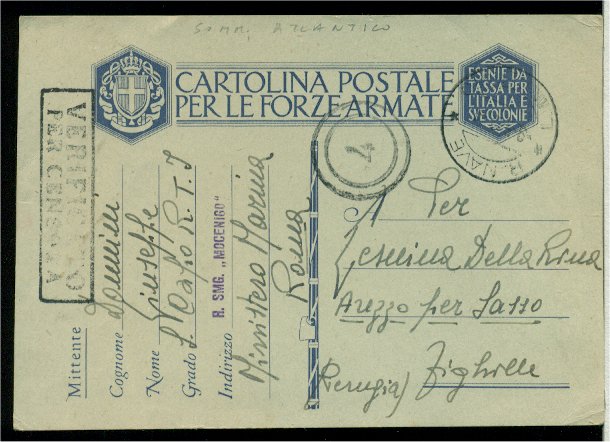 SOMM. ATLANTICO
CARTOLINA POSTALE
PER LE FORZE ARMATE
ESENTE DA
TASSA PER
L'ITALIA E
SVE COLONIE
VERIFICATO
PER CENSURA
4
R. NAVE
Mittente
Cognome
Nome Giuseppe
Grado S. Capo R.T.
R. SMG. „MOCENIGO"
Indirizzo Ministero Marina
Roma
Per
Gesuina Della Rina
Arezzo per Sasso
(Perugia)